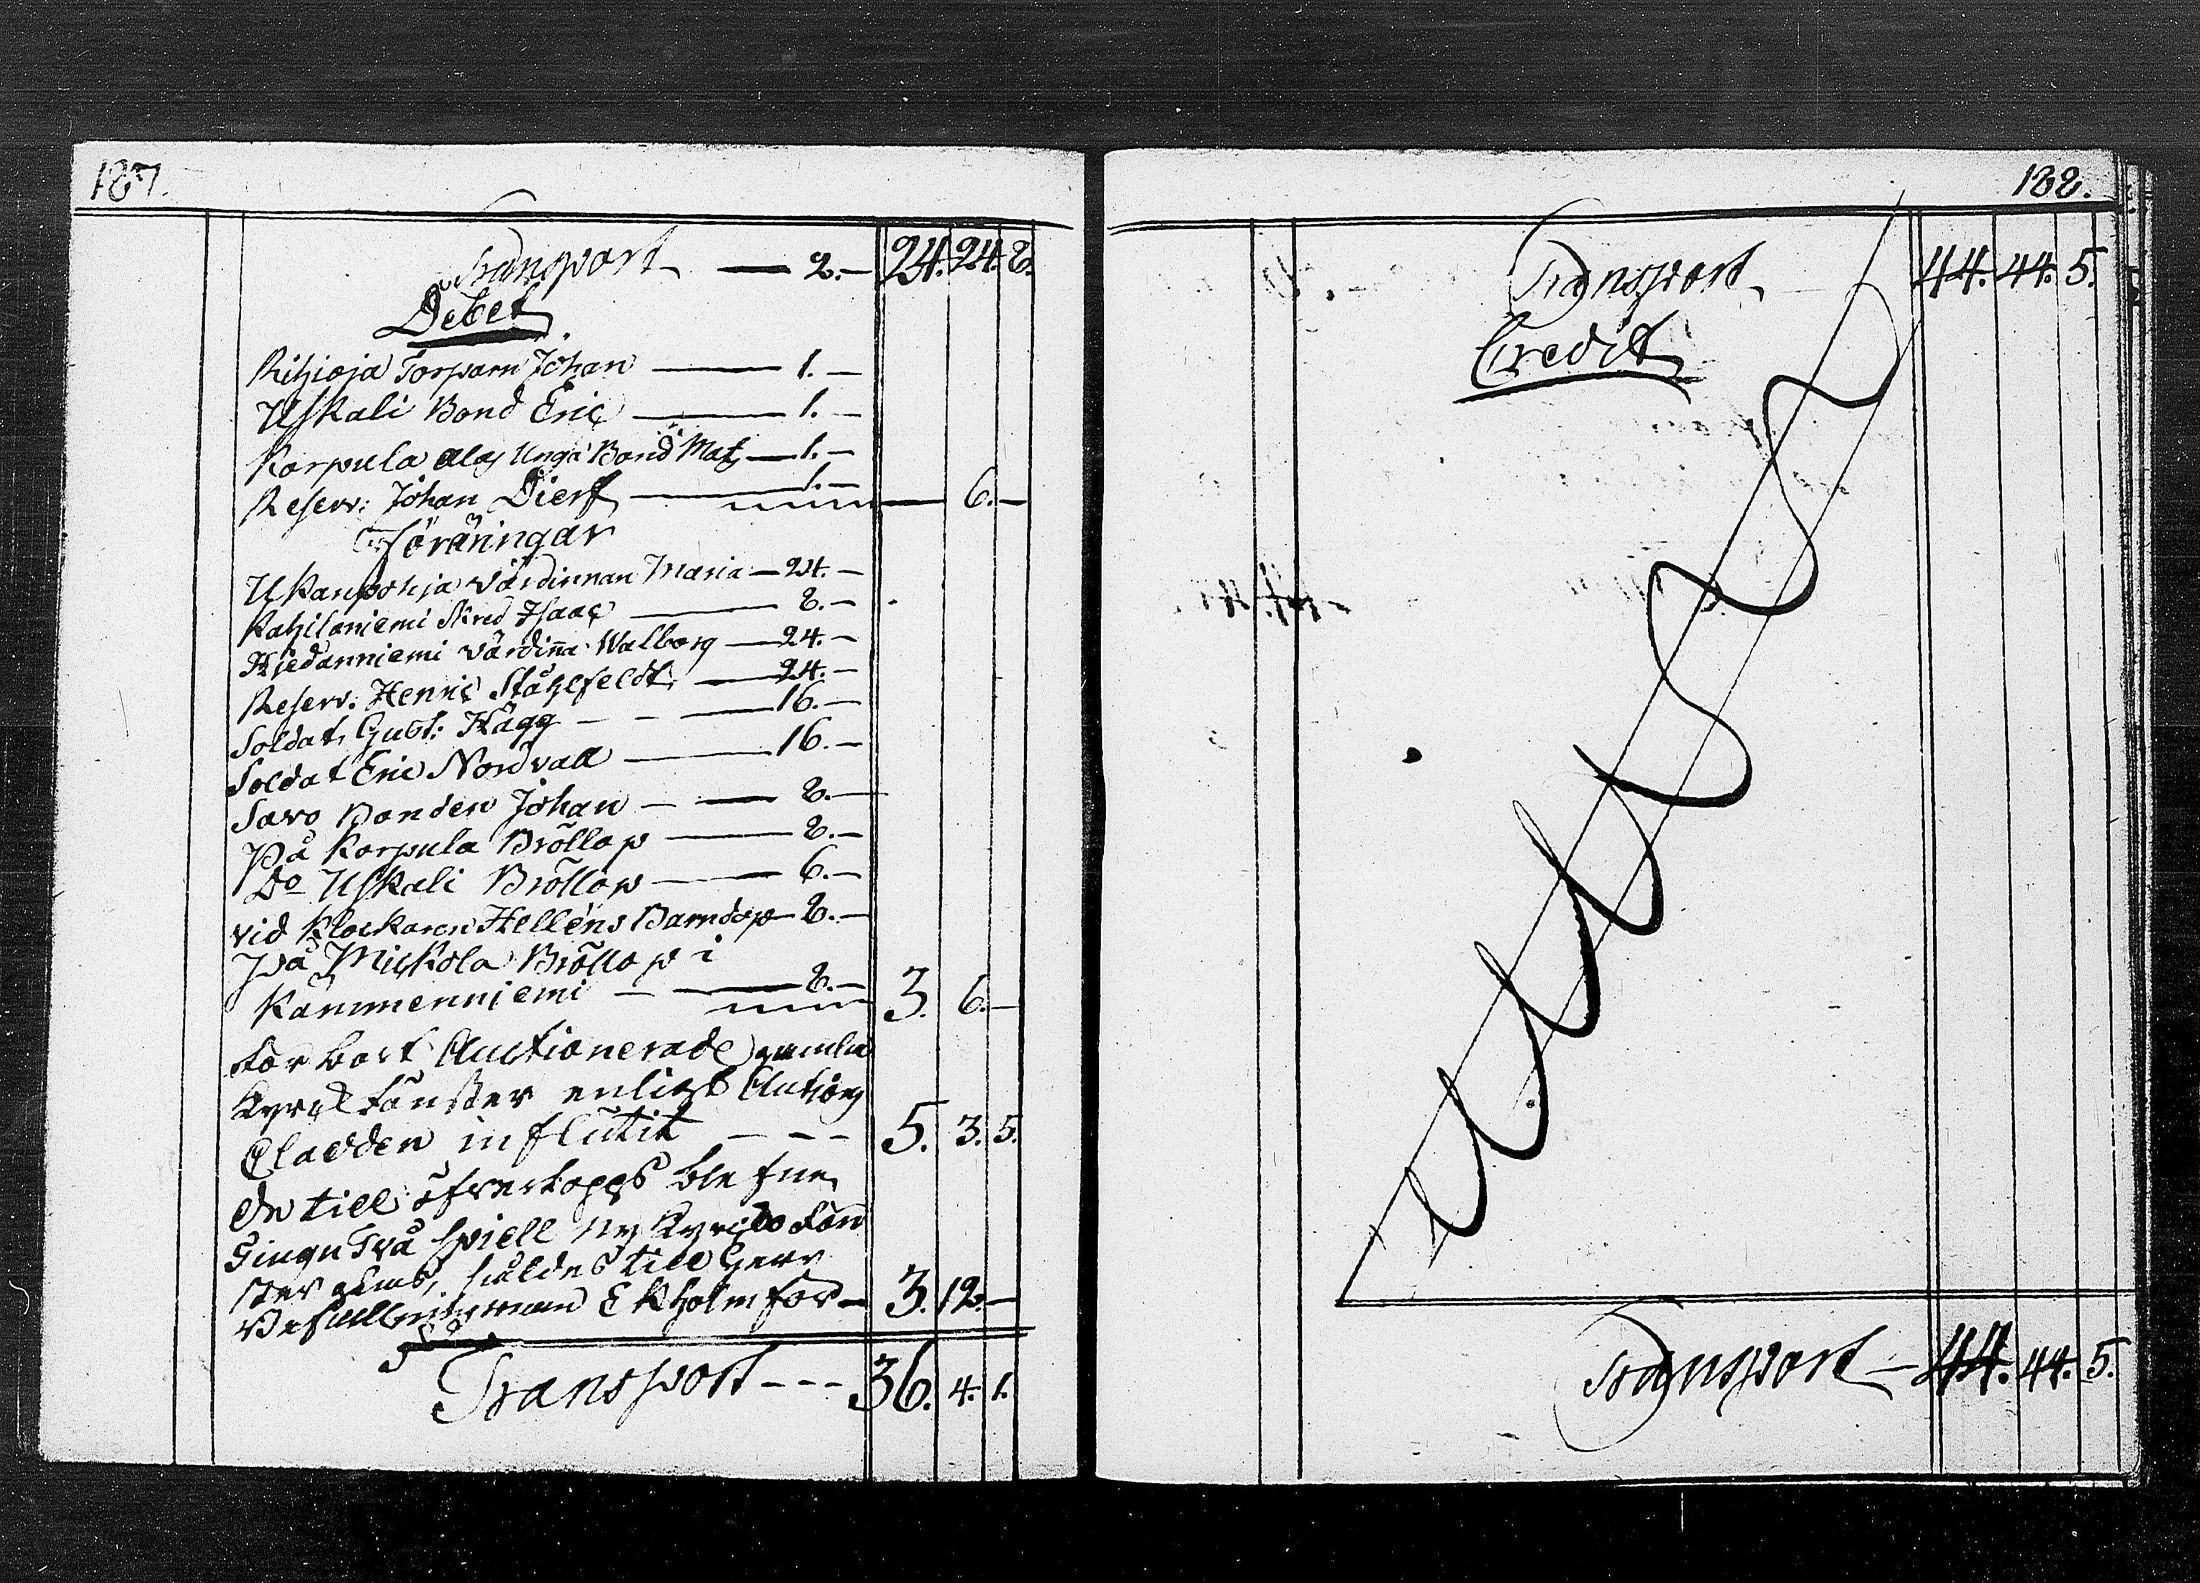 187.
Transport — 2.— 24. 24. 8.
Debet
Rihioja Torparn Johan — 1.—
Uskali Bond Eric — 1.—
Korpula Alas Unga Bond Mats — 1.—
Reserv: Johan Dierf — 1.— — 6.—
Föräringar
Ukanpohja Värdinnan Maria — 24.—
Kahilaniemi Skred Isaac — 8.—
Hiedanniemi Värdinna Walborg — 24.—
Reserv. Henric Ståhlfeldt — 24.—
Soldat Gust: Hägg — 16.—
Soldat Eric Nordvall — 16.—
Savo Bonden Johan — 8.—
På Korpula Bröllop — 8.—
Do Uskali Bröllop — 6.—
vid Klockaren Helléns Barndop — 8.—
På Mickola Bröllop i
Kämmenniemi — 8.— 3. 6.—
För bort Auctionerade gamla
Kyrck Fönster enligt Auctions
Cladden influtit — — — 5. 3. 5.
En till öfverlopps blefne
Tva Spiell Ny Kyrcko Fön
ster såldes till Herr
Befallningsman Ekholm för — 3. 12.—
Transport - - - 36. 4. 1.
188.
Transport 44. 44. 5.
Credit
Transport — 44. 44. 5.